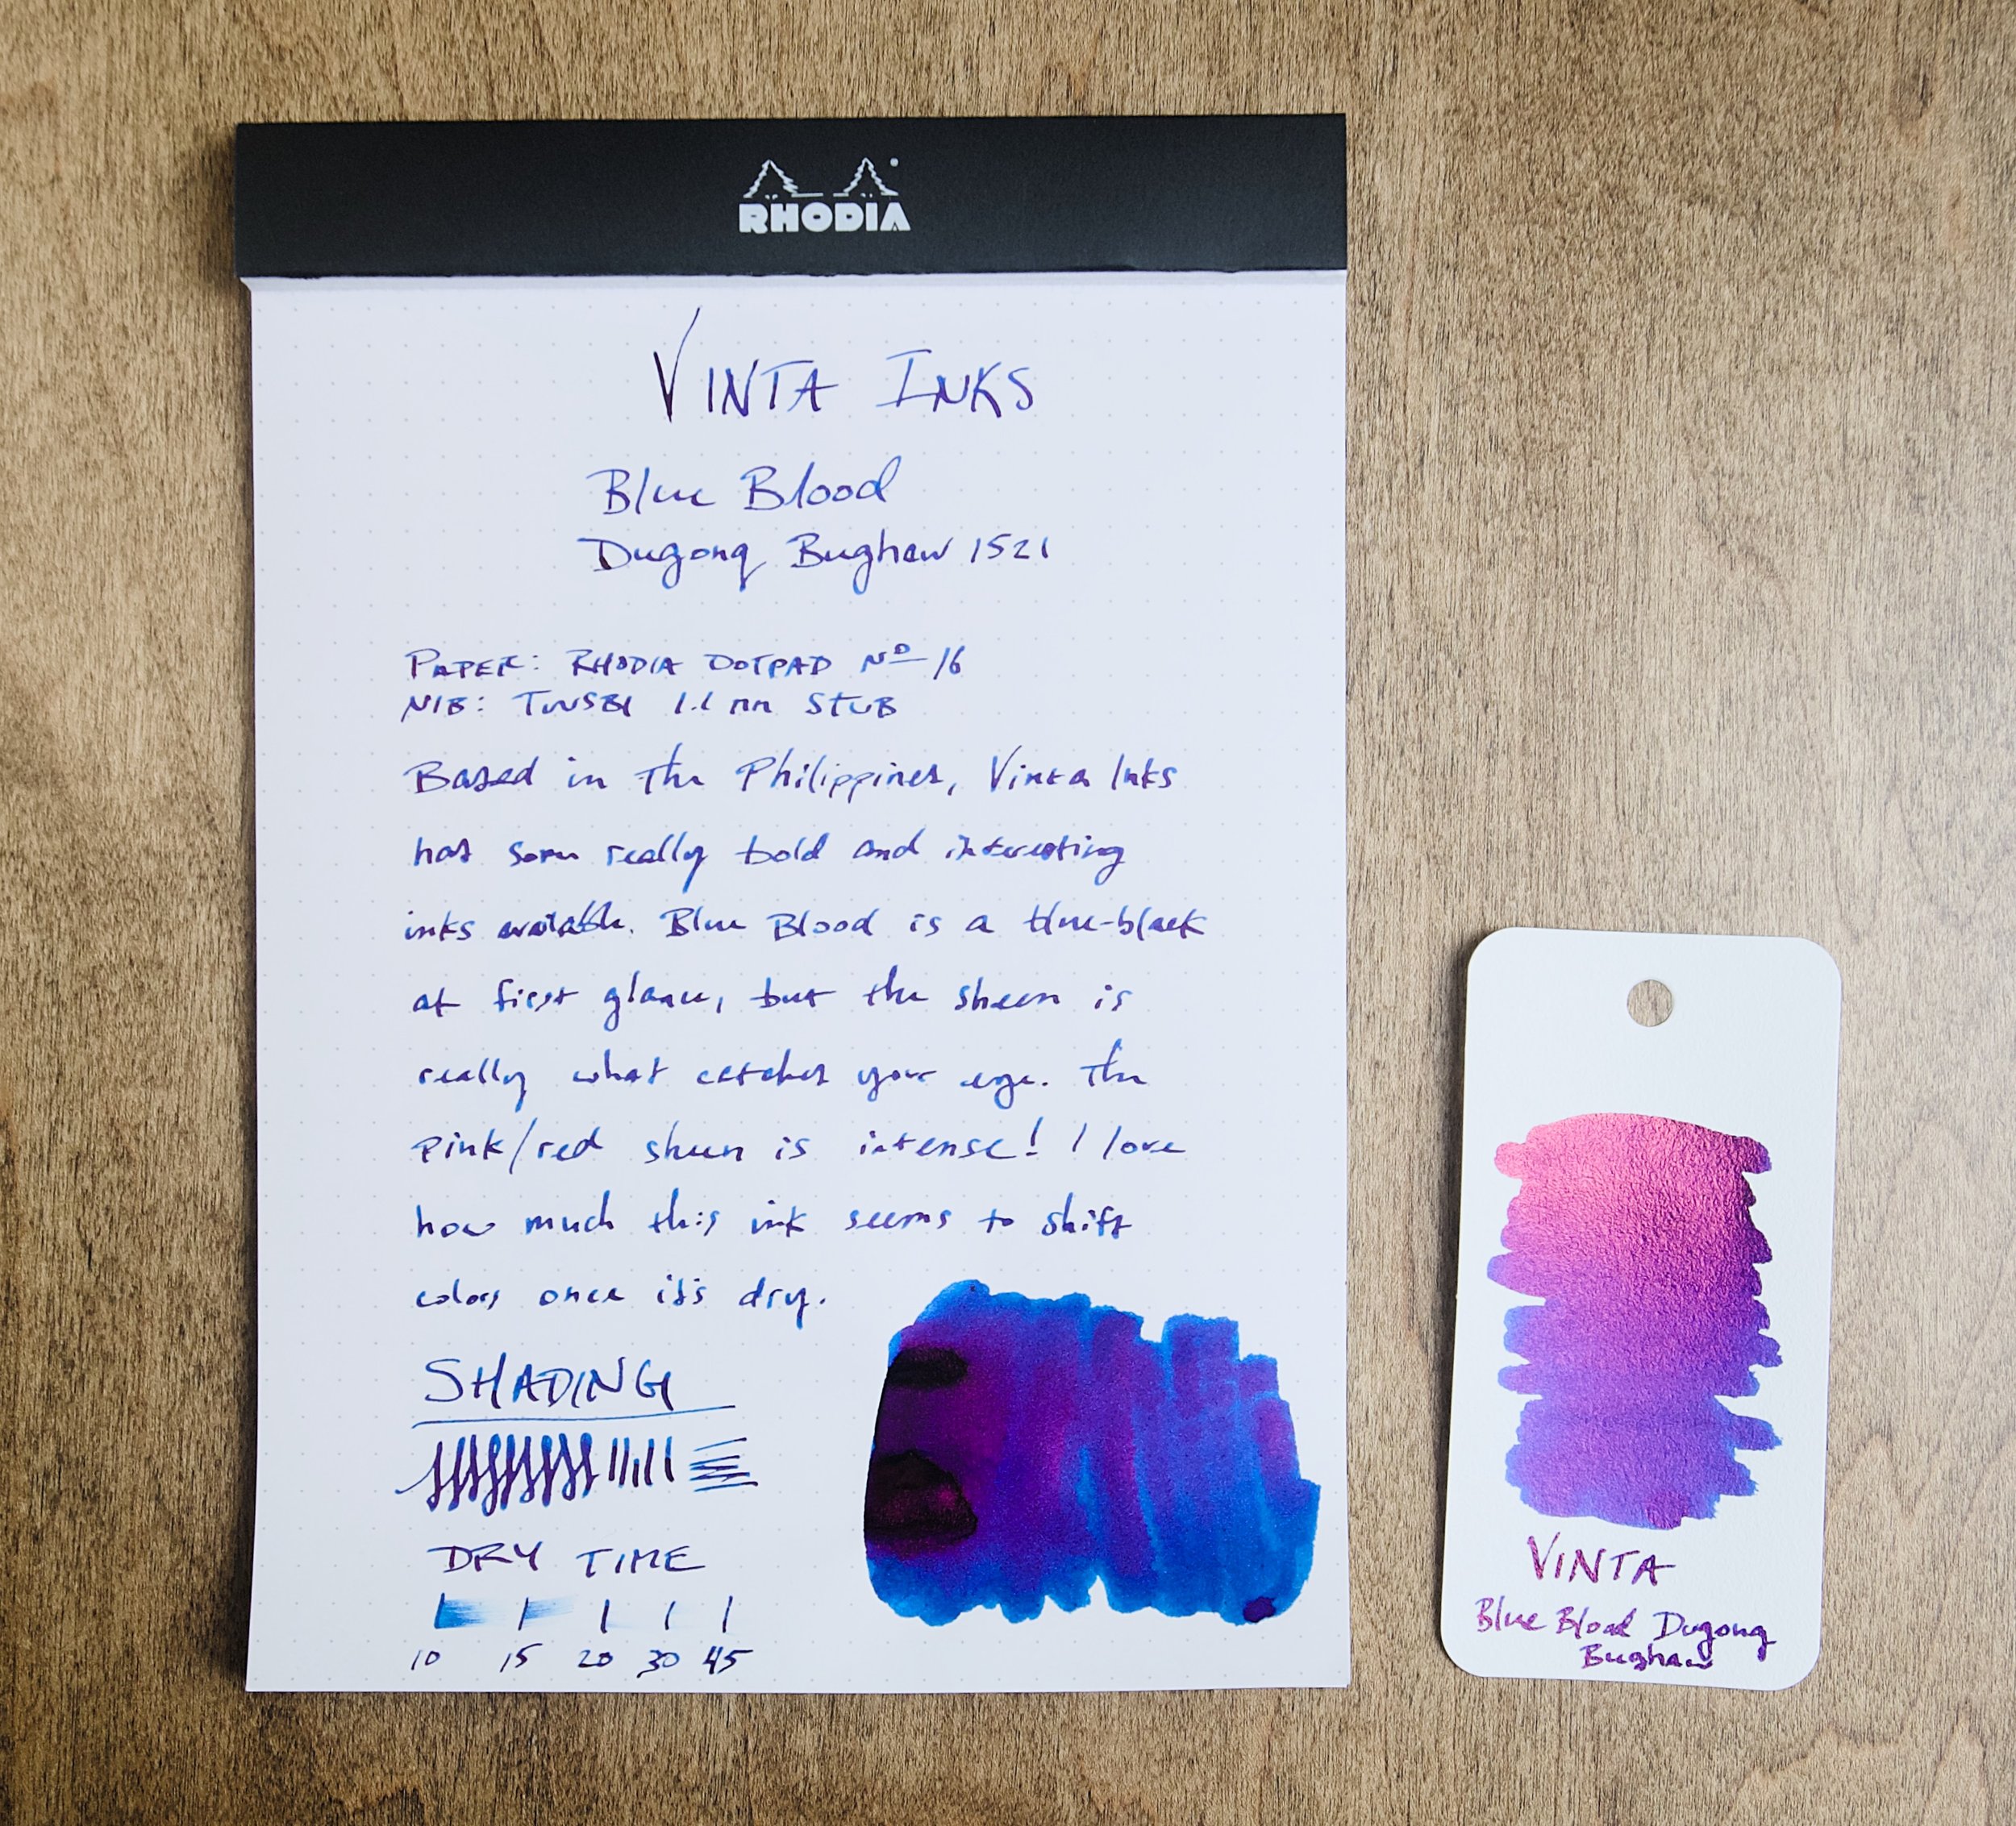 RHODIA
VINTA INKS
Blue Blood
Dugong Bughaw 1521
PAPER: RHODIA DOTPAD Nº 16
NIB: TWSBI 1.1 mm STUB
Based in the Philippines, Vinta Inks
has some really bold and interesting
inks available. Blue Blood is a blue-black
at first glance, but the sheen is
really what catches your eye. The
pink/red sheen is intense! I love
how much this ink seems to shift
colors once it's dry.
SHADING
DRY TIME
10 15 20 30 45
VINTA
Blue Blood Dugong
Bughaw